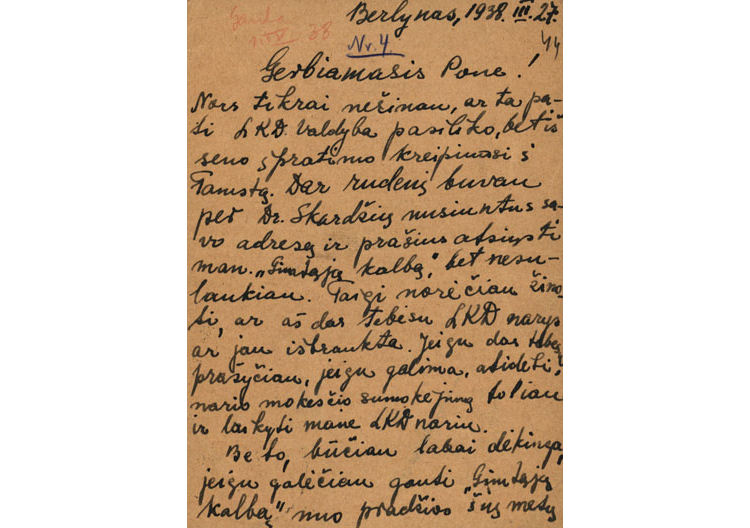 Berlynas, 1938.III.27.
Gauta
38
Nr. 4.
44
Gerbiamasis Pone!
Nors tikrai nežinau, ar ta pa-
ti LKD. Valdyba pasiliko, bet iš
seno įpratimo kreipiuosi į
Tamstą. Dar rudenį buvau
per Dr. Skardžių nusiuntus sa-
vo adresą ir prašius atsiųsti
man „Gimtąją kalbą", bet nesu-
laukiau. Taigi norėčiau žino-
ti, ar aš dar tebesu LKD narys
ar jau išbraukta. Jeigu dar tebesu
prašyčiau, jeigu galima, atidėti
nario mokesčio sumokėjimą toliau
ir laikyti mane LKD nariu.
Be to, būčiau labai dėkinga,
jeigu galėčiau gauti „Gimtąją
kalbą" nuo pradžios šių metų